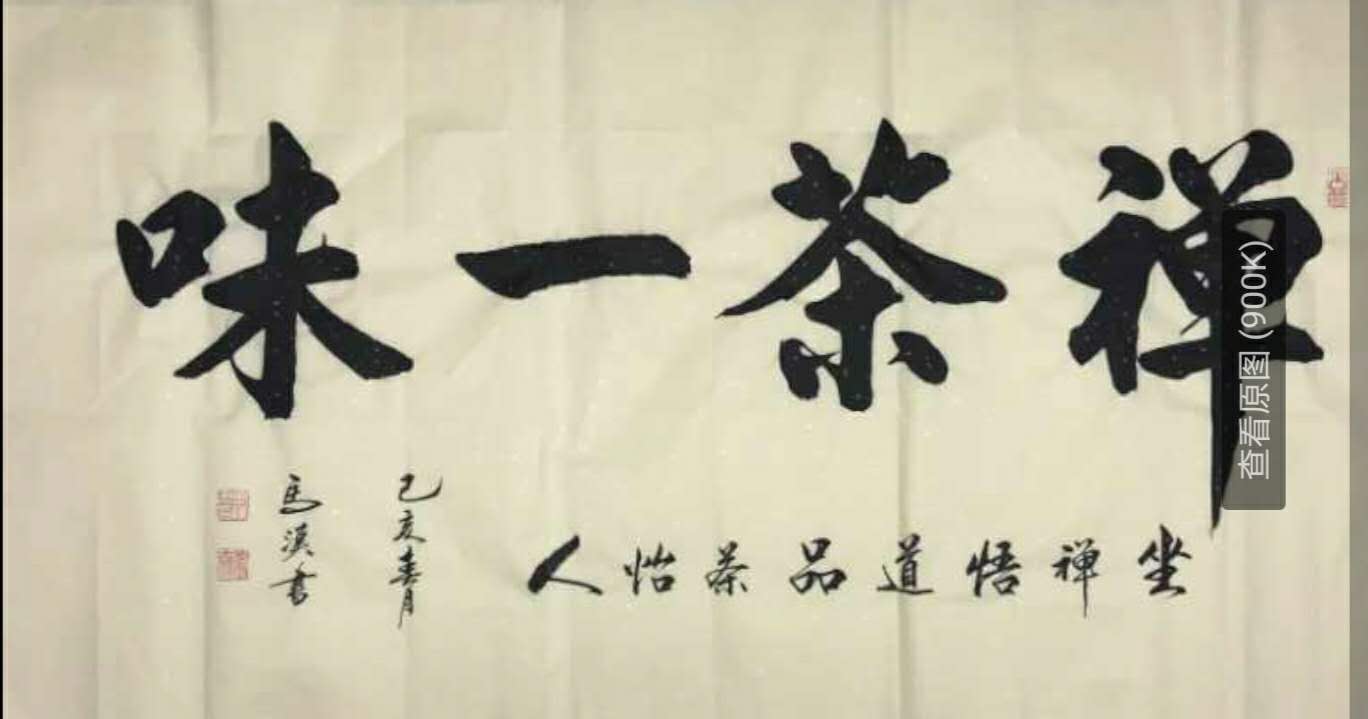 禅茶一味
坐禅悟道品茶怡人
己亥春月
馬漢书
查看原图 (900K)